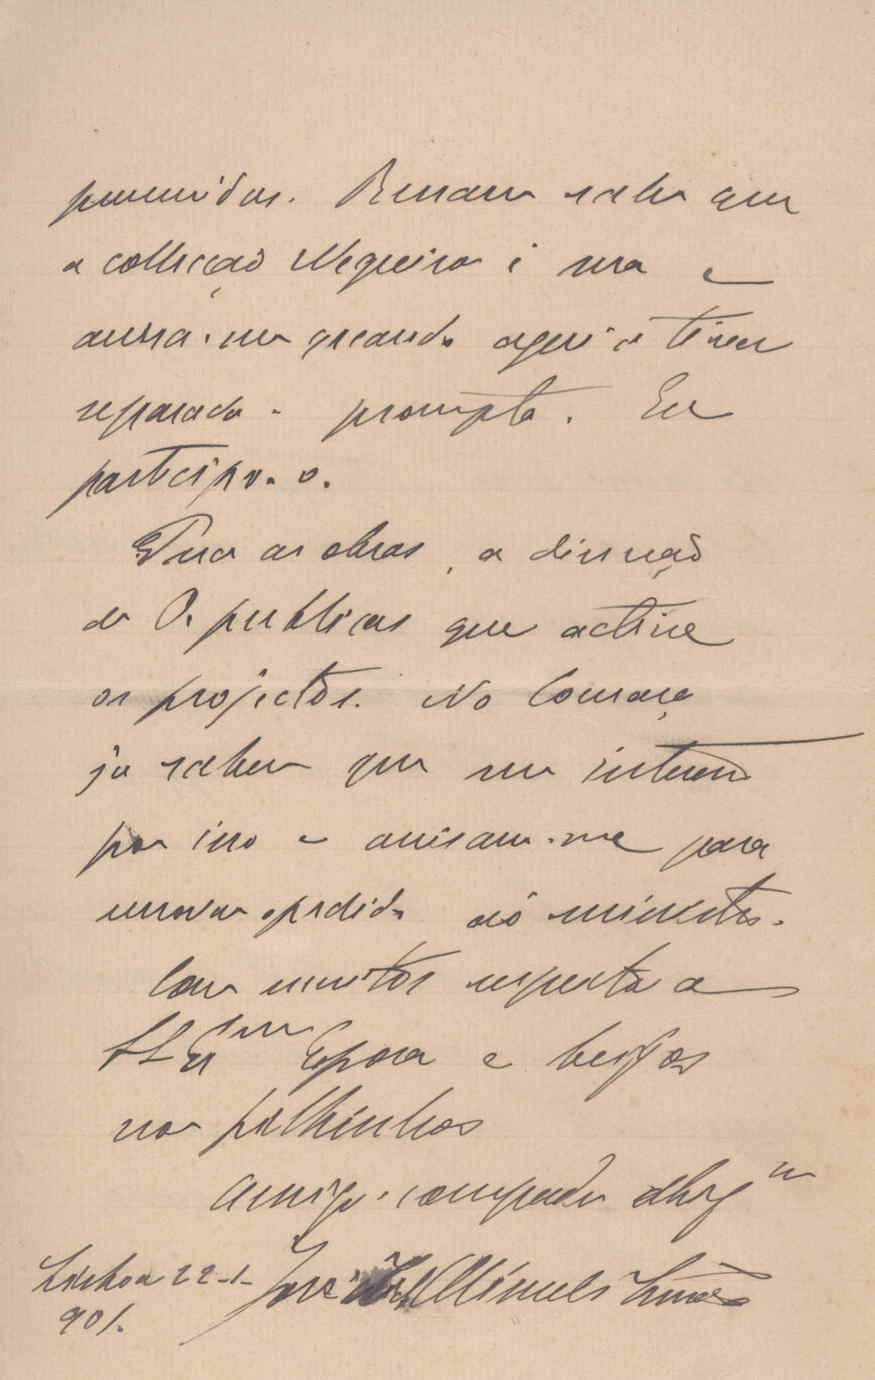 promovidos. saber que
a collecção Negreiros é sua e
avisa-me quando aqui a tiver
reparada - prompta. Eu
participo-o.
as obras, a direcção
de O. publicas que active
os projectos. No
já sabem que me interesso
por isso e avisam-me para
renovar o pedido aó ministro.
Com muitos respeitos a
Exma Esposa e beijos
nos filhinhos
Amigo e compadre obrgo
Lisboa 22-1-
901. José